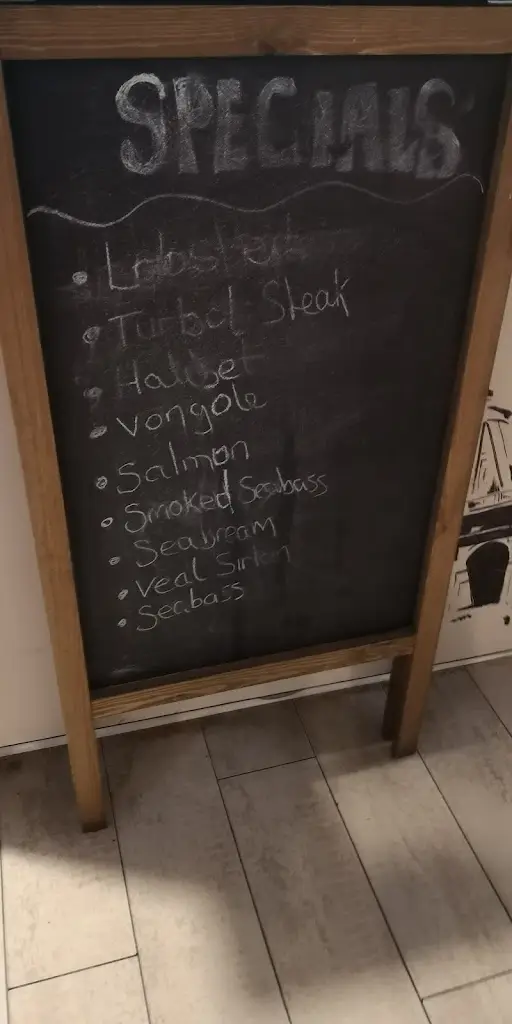 SPECIALS
• Lobster
• Turbot Steak
• Halibet
• Vongole
• Salmon
• Smoked Seabass
• Seabream
• Veal Sirloin
• Seabass